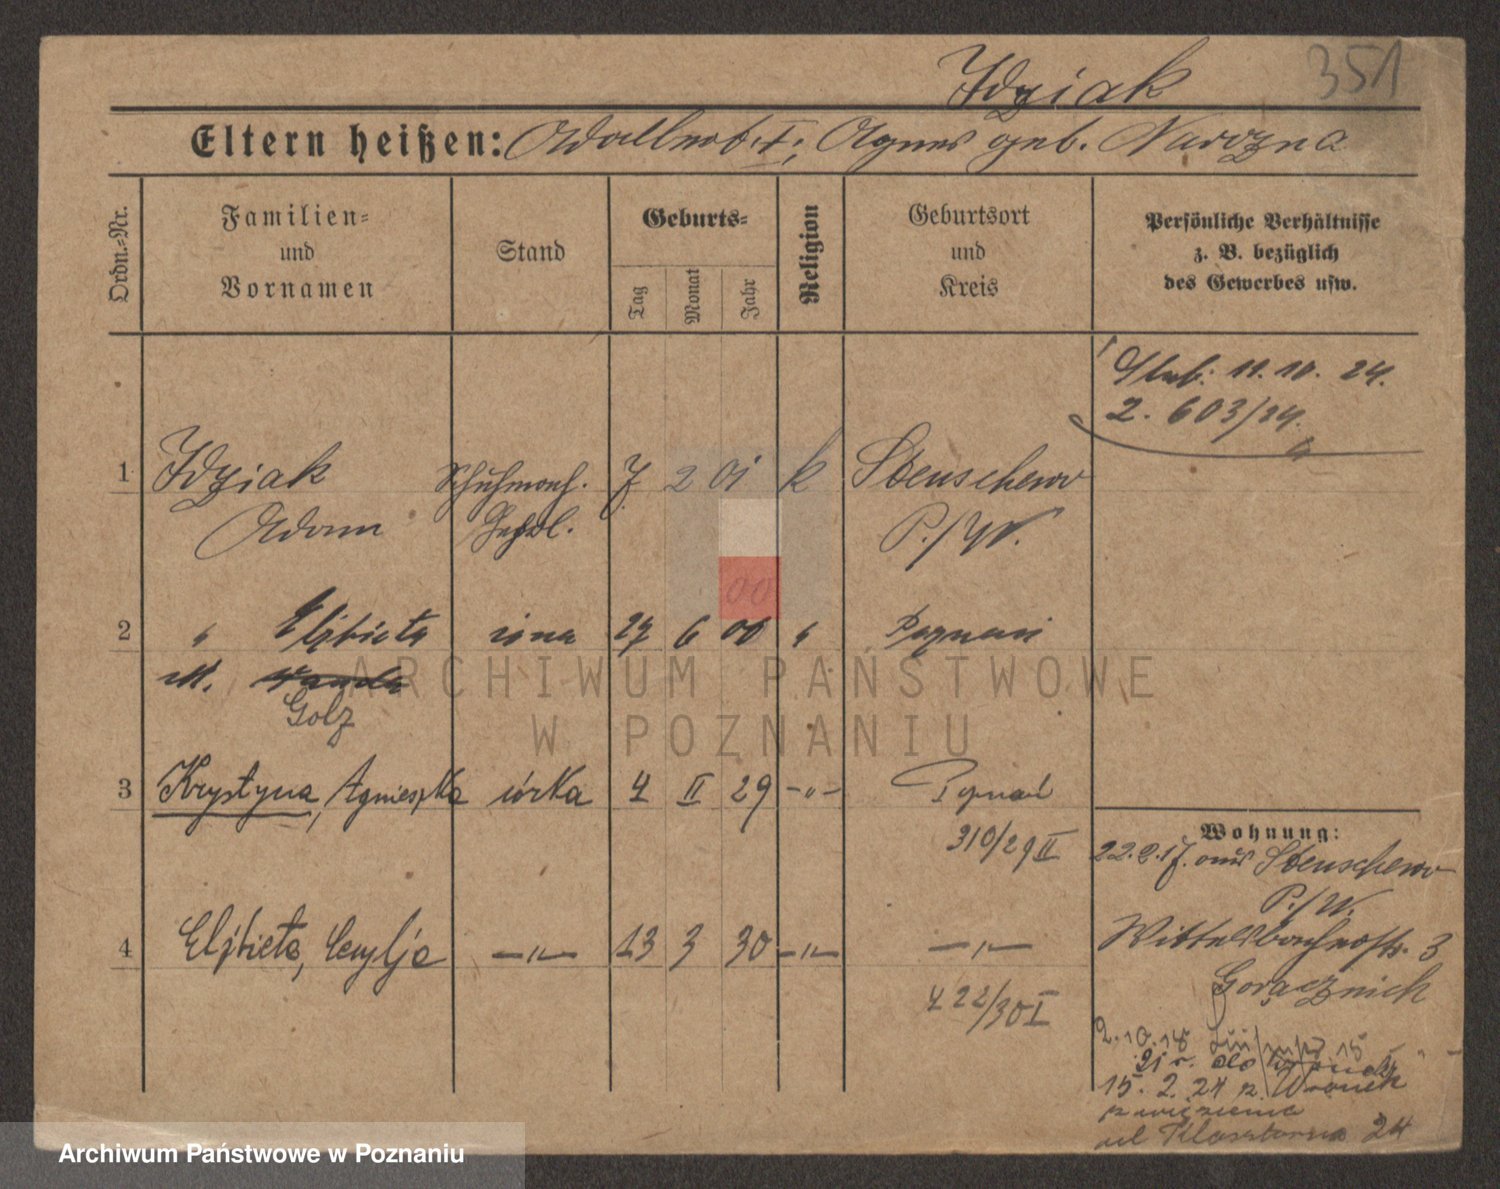 351
Idziak
Eltern heißen: Adalbert I; Agnes geb. Narozna
Ordn.=Nr.
Familien=
und
Vornamen
Stand
Geburts=
Tag
Monat
Jahr
Religion
Geburtsort
und
Kreis
Persönliche Verhältnisse
z. B. bezüglich
des Gewerbes usw.
11. 10. 24.
2. 603/24.
1 Idziak Schuhmach. 7 2 01 k Steuschewo
Adam P./W.
00
2 " Elżbieta żona 27 6 00 " Poznań
Golz
3 Krystyna, Agnieszka córka 4 II 29 -"- Poznań
310/29 II
4 Elżbieta, Cecylja -"- 13 3 30 -"- -"-
422/30 I
Wohnung:
22.2.17. aus Steuschewo
P./W.
Wittelsbacherstr. 3
Gorącznick
2.10.18
21 r. do Wronek
15. 2. 24 z Wronek
z więzienia
ul Klasztorna 24
ARCHIWUM PAŃSTWOWE
W POZNANIU
Archiwum Państwowe w Poznaniu